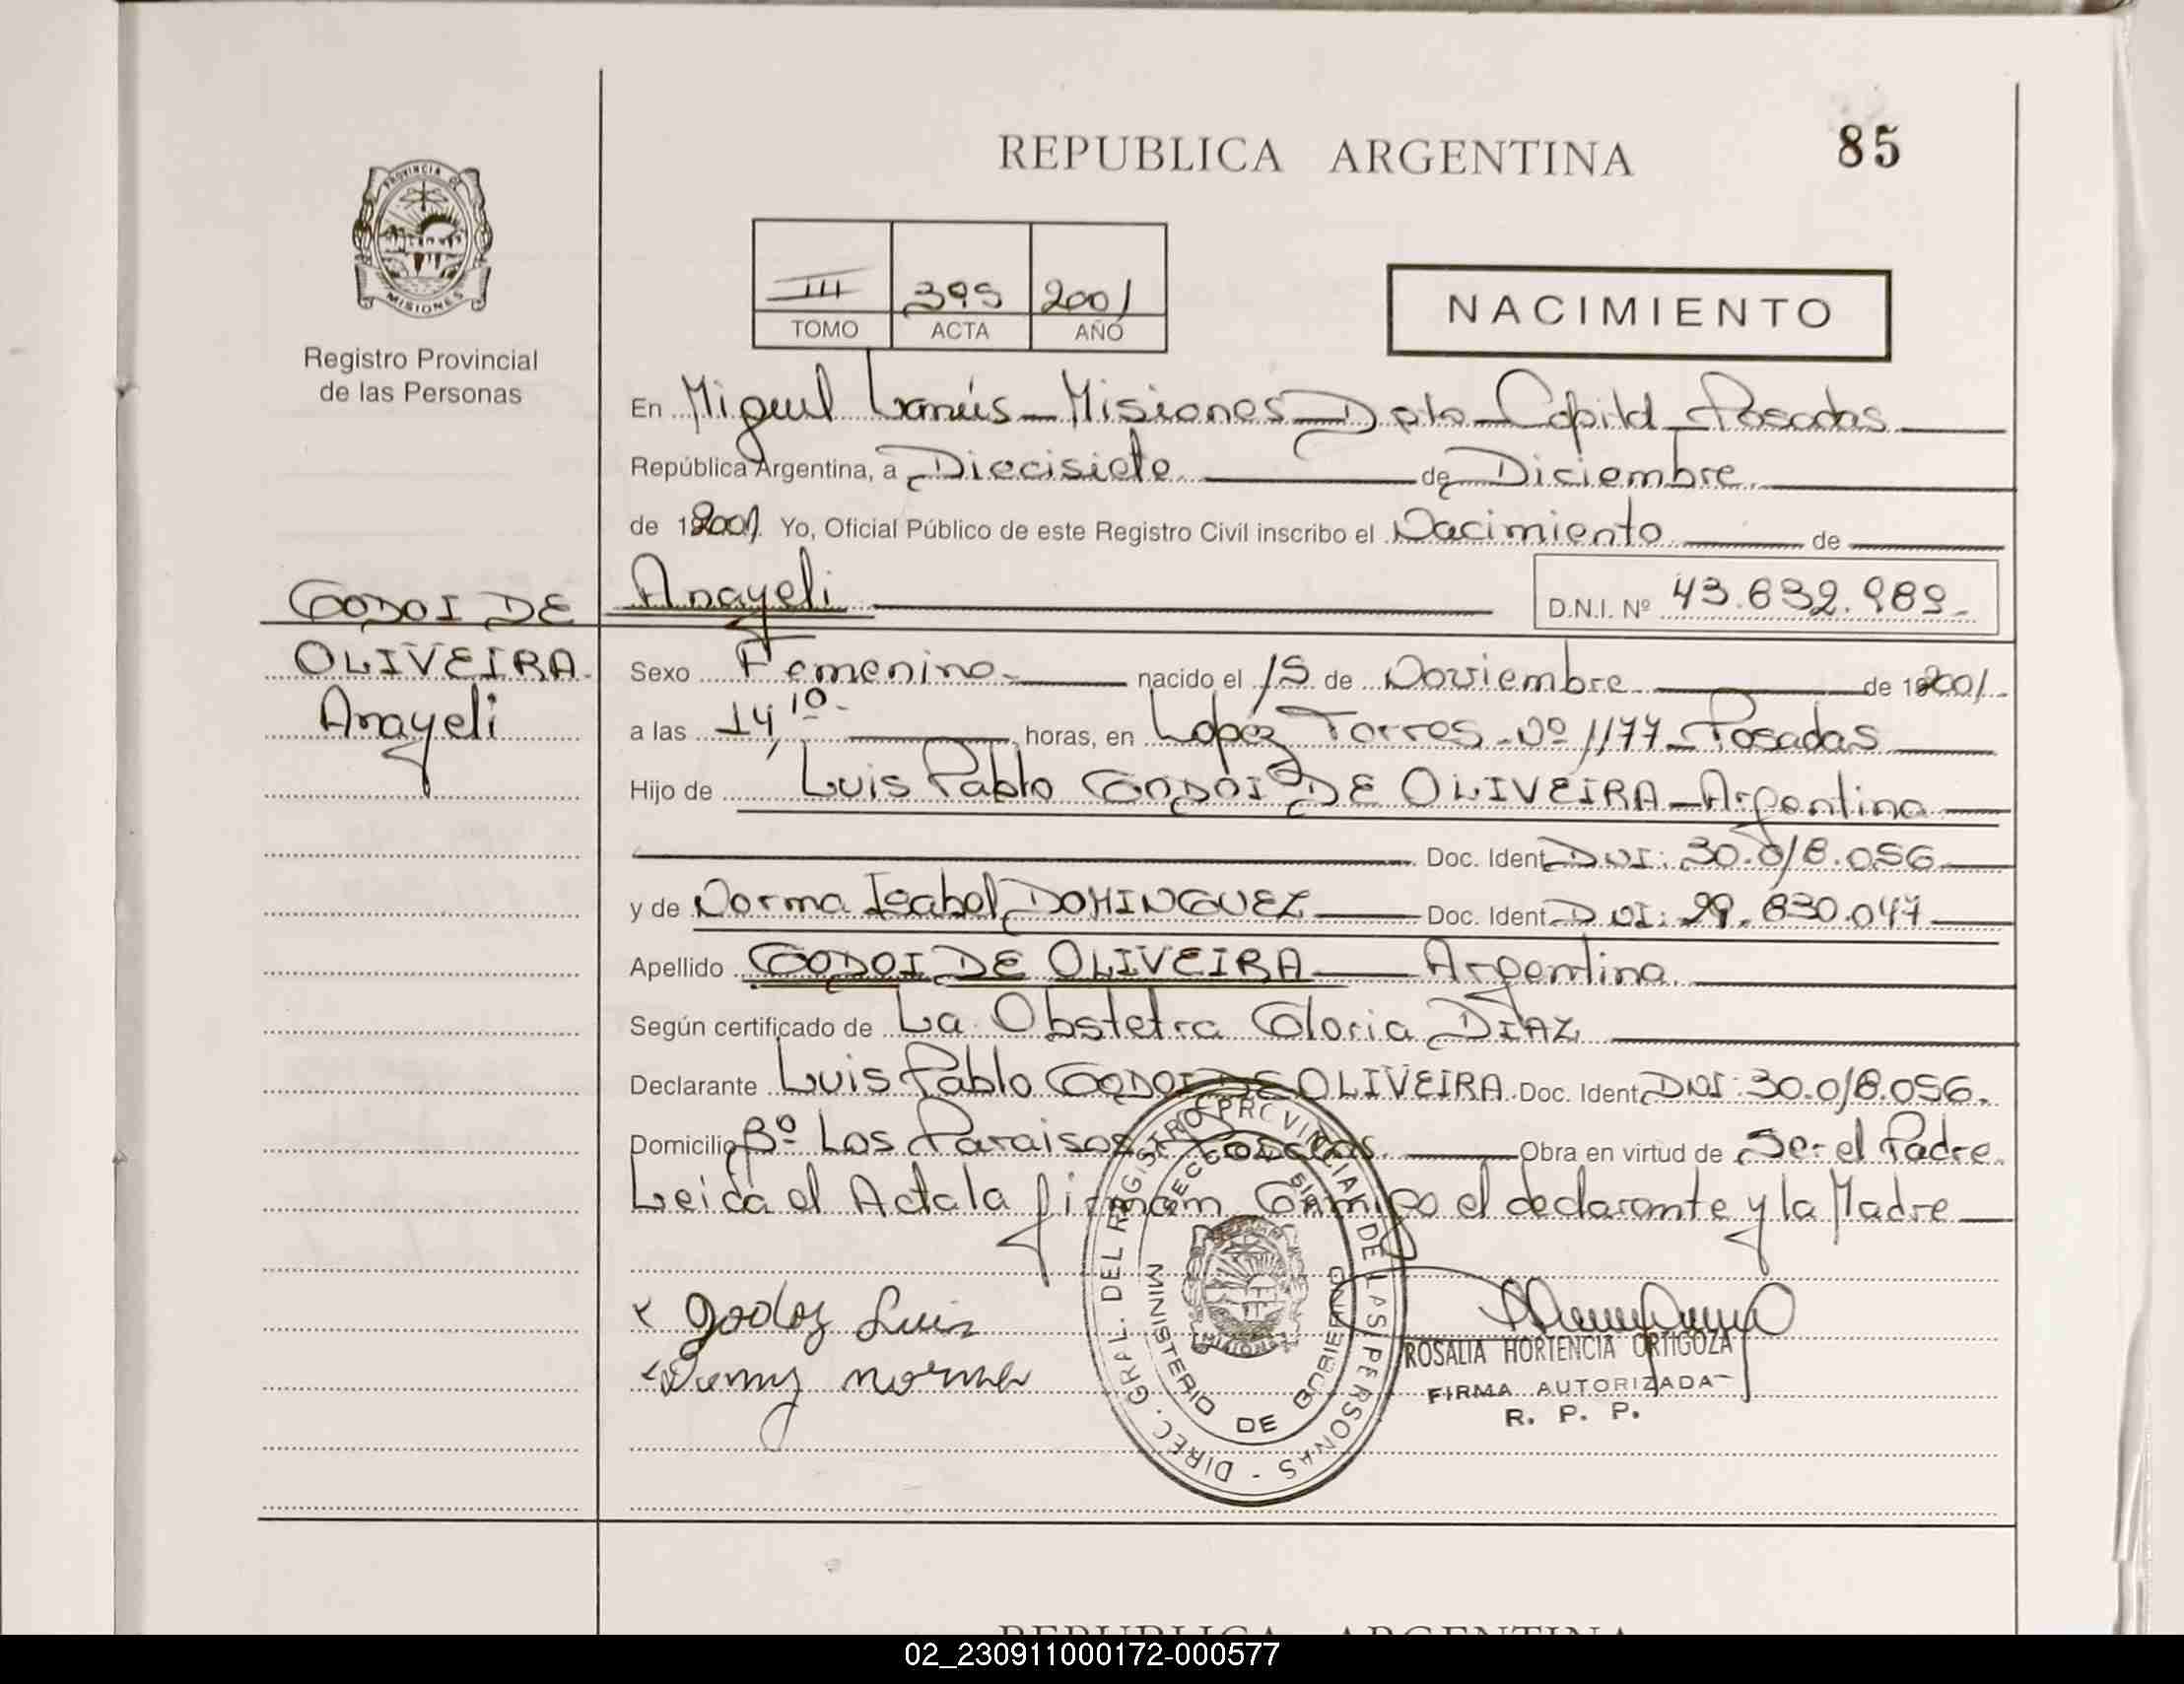 REPUBLICA ARGENTINA
85
PROVINCIA DE
MISIONES
Registro Provincial
de las Personas
III 395 2001
TOMO ACTA AÑO
NACIMIENTO
En Miguel Lanús - Misiones - Dpto - Capital - Posadas
República Argentina, a Diecisiete de Diciembre
de 2001 Yo, Oficial Público de este Registro Civil inscribo el Nacimiento de
GODOI DE
OLIVEIRA
Anayeli
Anayeli
D.N.I. Nº 43.632.989-
Sexo Femenino - nacido el 15 de Noviembre de 2001
a las 14,10- horas, en Lopéz Torres - Nº 1177 - Posadas
Hijo de Luis Pablo GODOI DE OLIVEIRA - Argentino
Doc. Ident. DNI: 30.018.056
y de Norma Isabel DOMINGUEZ Doc. Ident. DNI: 29.830.047
Apellido GODOI DE OLIVEIRA Argentina
Según certificado de La Obstetra Gloria DIAZ
Declarante Luis Pablo GODOI DE OLIVEIRA Doc. Ident. DNI: 30.018.056.
Domicilio Bº Los Paraisos - Posadas. Obra en virtud de Ser el Padre
Leida el Acta la firman Conmigo el declarante y la Madre
Godoy Luis
norma
DIREC. GRAL. DEL REGISTRO PROVINCIAL DE LAS PERSONAS -
MINISTERIO DE GOBIERNO
ROSALIA HORTENCIA ORTIGOZA
FIRMA AUTORIZADA
R. P. P.
REPUBLICA ARGENTINA
02_230911000172-000577